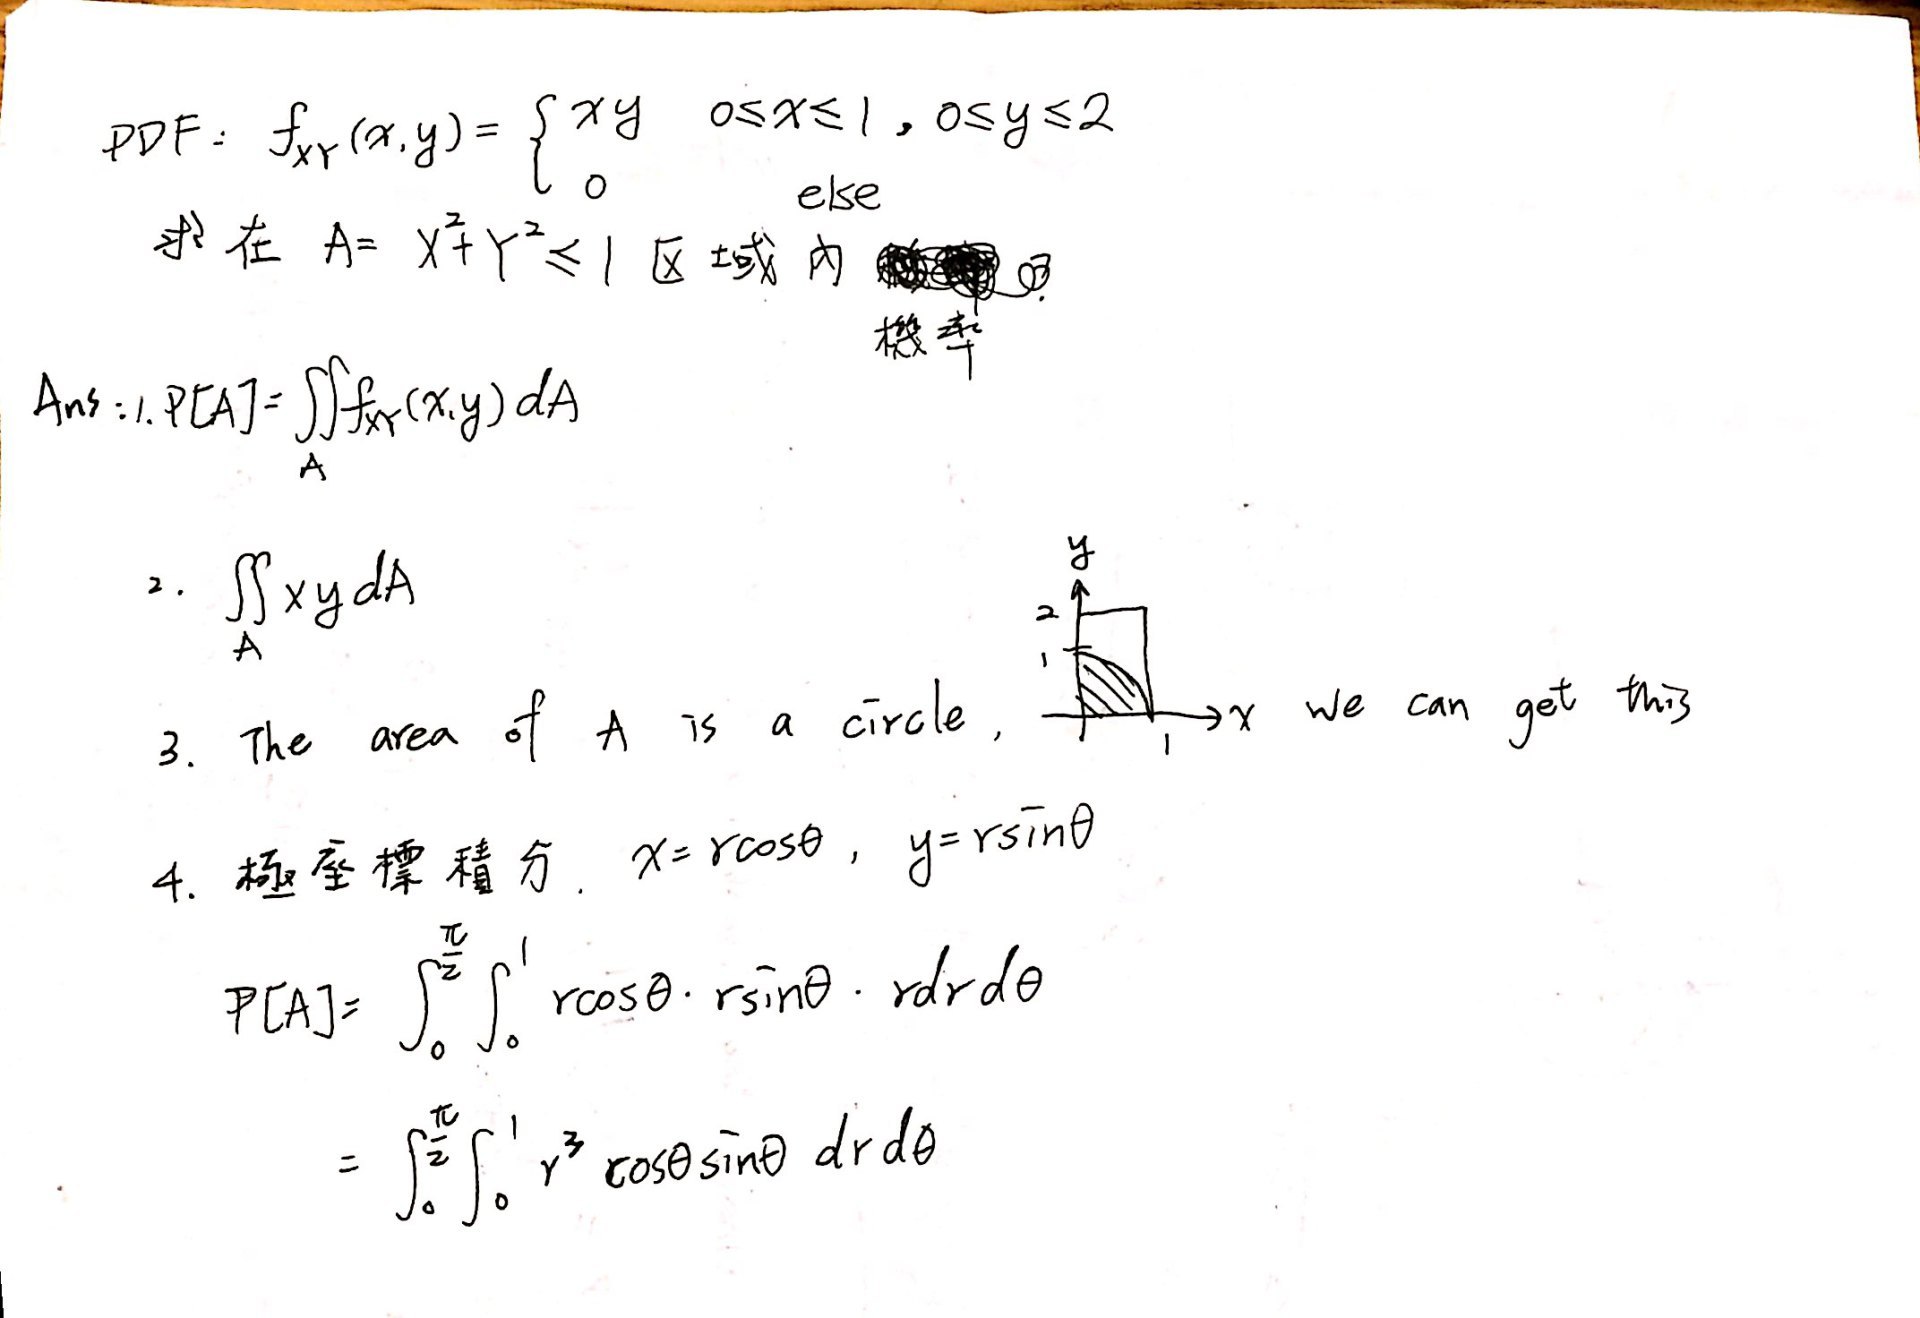 PDF: fXY(x,y)= { xy 0≤x≤1, 0≤y≤2
0 else
求在 A= X²+Y²≤1 区域內 ?
機率
Ans:1. P[A]= ∬ fXY(x,y) dA
A
2. ∬ xy dA
A
y
2
1
3. The area of A is a circle, x we can get this
1
4. 極座標積分. x=rcosθ, y=rsinθ
P[A]= ∫₀^(π/2) ∫₀^1 rcosθ · rsinθ · rdrdθ
= ∫₀^(π/2) ∫₀^1 r³ cosθsinθ drdθ